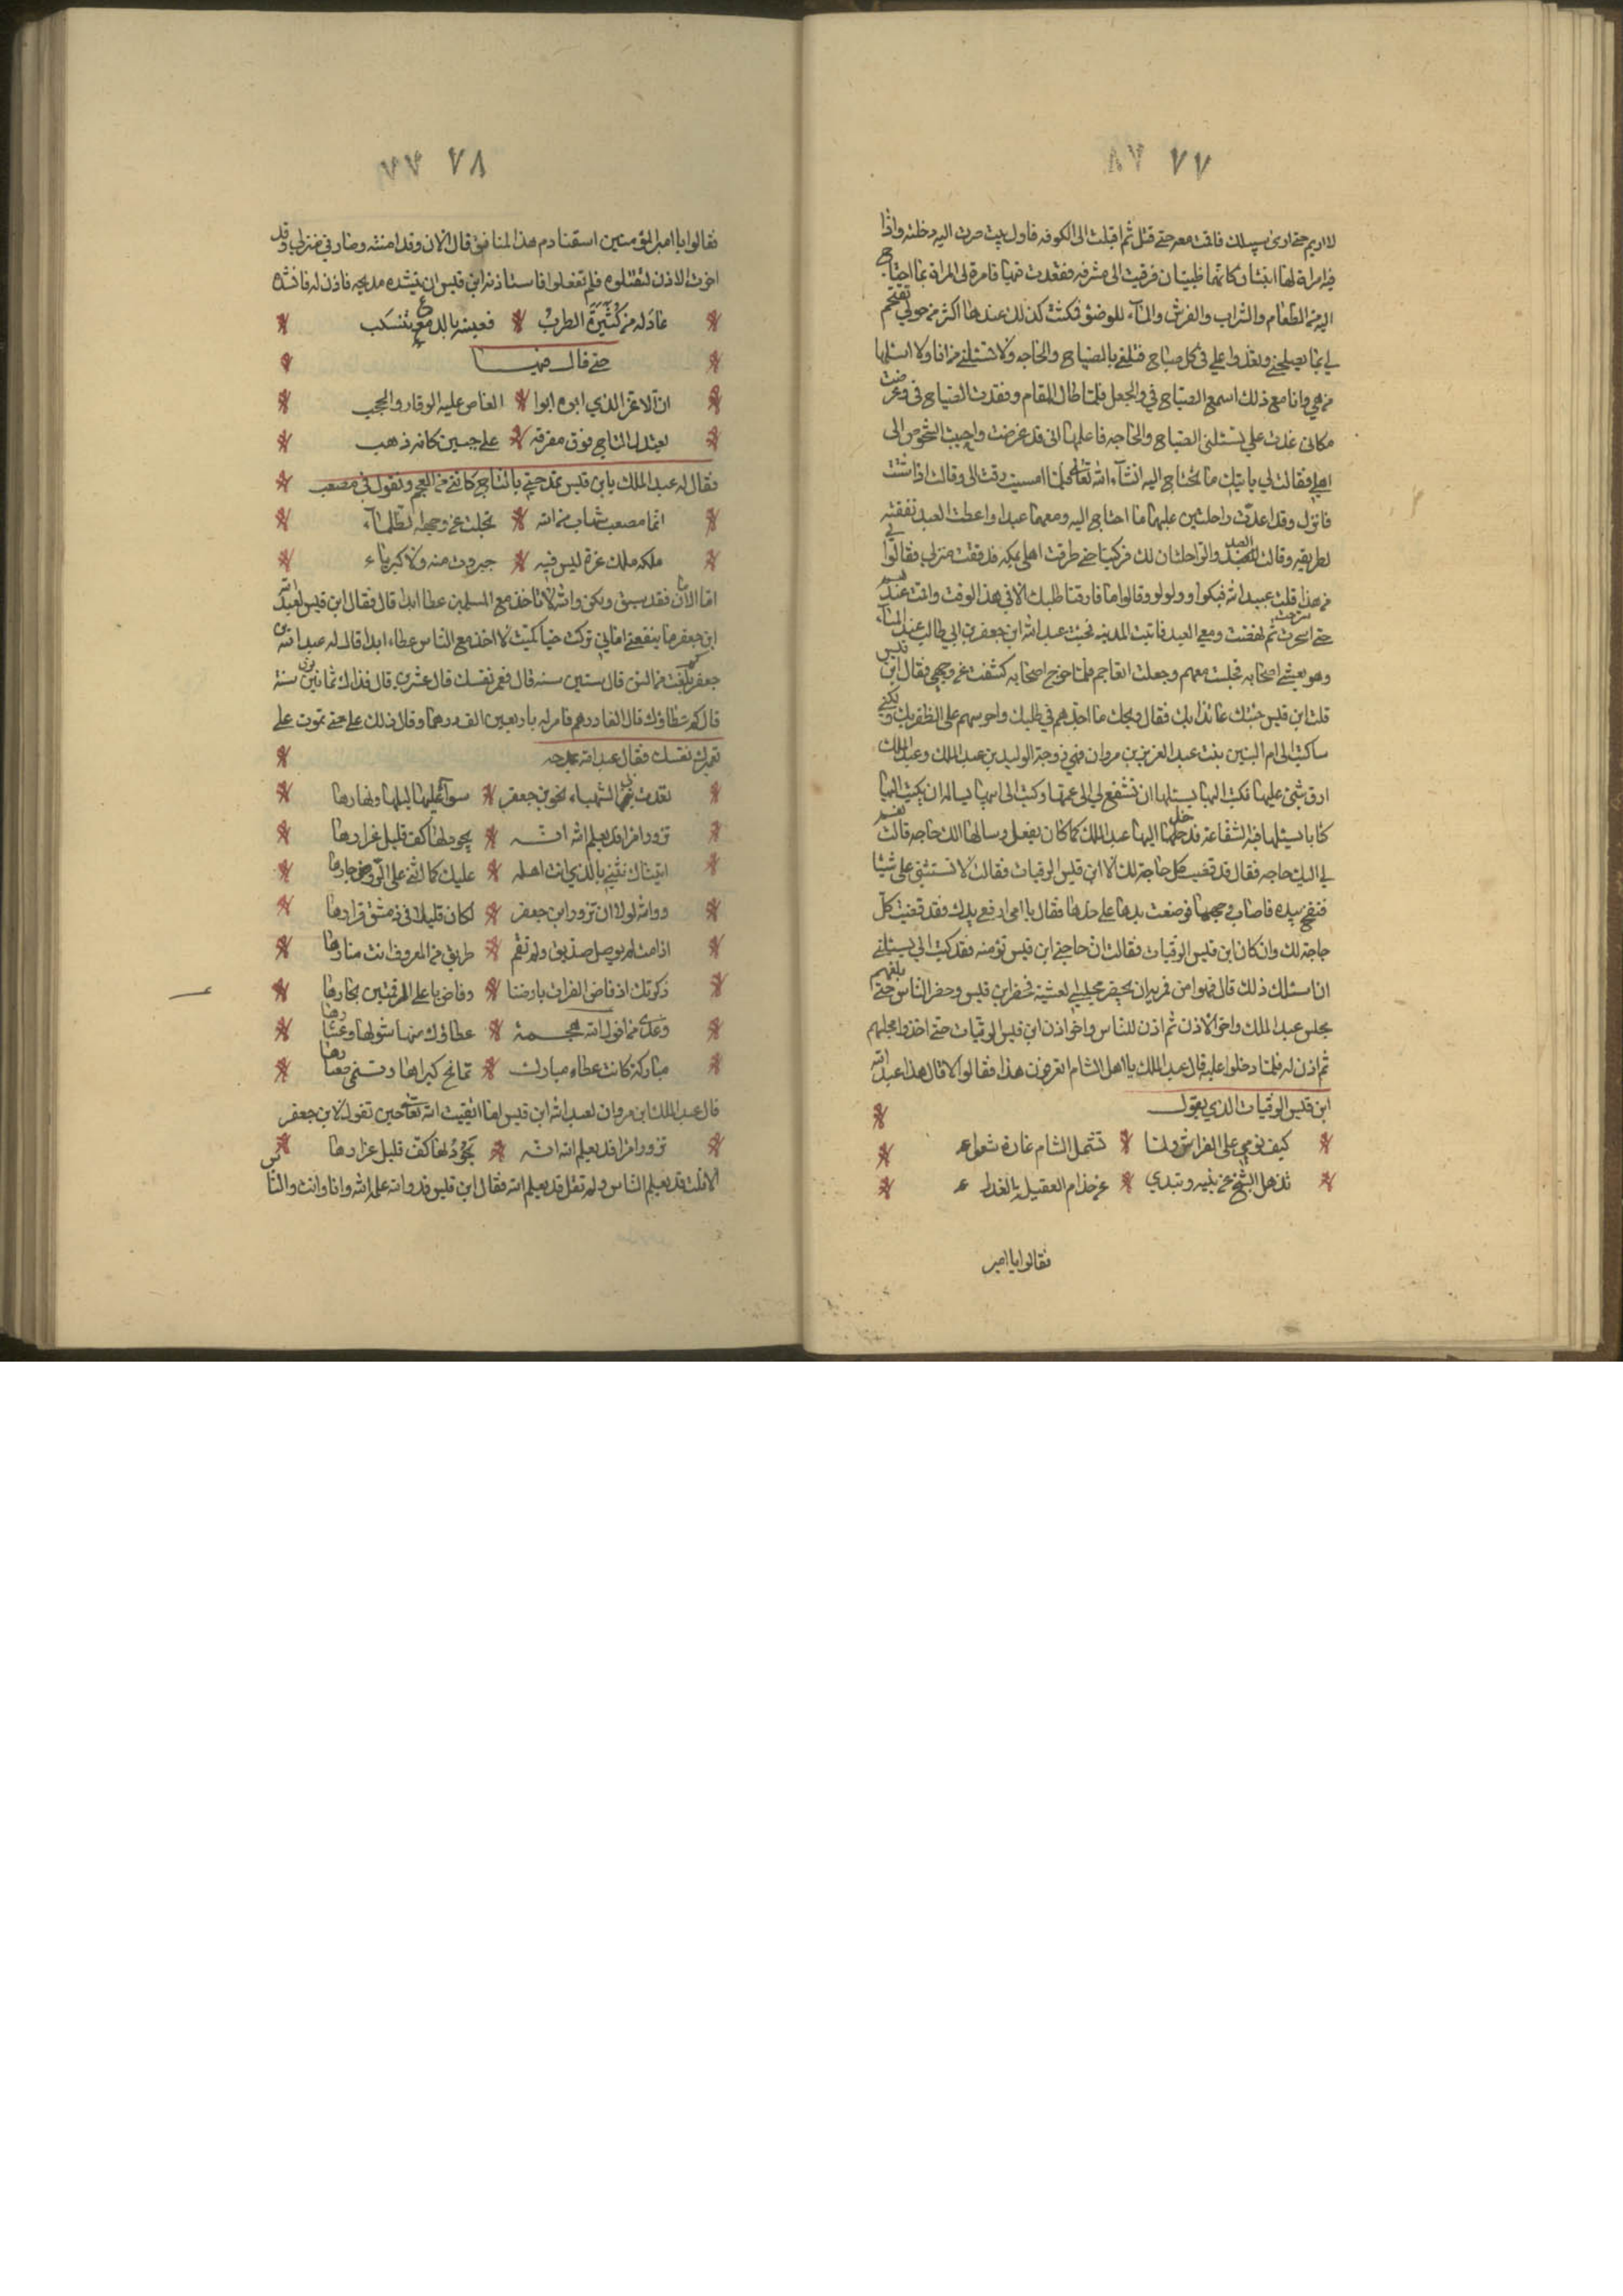 ٧٧
لا اريم حتى ارى سبيلك فاقمت معه حتى قتل ثم اقبلت الى الكوفه فاول بيت صرت اليه دخلته واذا
فيه امراة لها ابنتان كانهما ظبيتان فرقيت الى مشرفه فقعدت فيها فامرة لي المراة بما احتاج
اليه من الطعام والشراب والفرش والماء للوضوء فكنت كذلك عندها اكثر من حول تقيم
لي بما يصلحني وتغدوا علي في كل صباح فتلقي بالصباح والحاجه ولا تسئلني من انا ولا اسئلها
من هي وانا مع ذلك اسمع الصياح في والجعل فلما طال المقام وفقدت الصياح في وغرضت
مكاني غدت علي تسئلني الصباح والحاجه فاعلمتها اني قد غرضت واحببت الشخوص الى
اهلي فقالت لي ياتيك ما تحتاج اليه انشاء الله تعالى فلما امسيت رقت الى وقالت اذا شئت
فانزل وقد اعدت راحلتين عليهما ما احتاج اليه ومعهما عبدا واعطت العبد نفقته
لطريقه وقالت العبد والراحلتان لك فركبنا حتى طرقت اهلي بمكه فدققت منزلي فقالوا لي
من هذا قلت عبيد الله فبكوا وولولو وقالوا ما فارقنا طلبك الا في هذا الوقت واقمت عندهم
حتى اسحرت ثم نهضت ومعي العبد فاتيت المدينه فجئت عبد الله ابن جعفر بن ابي طالب عند المساء
وهو يعشي اصحابه فجلست معهم وجعلت اتعاجم فلما خرج اصحابه كشفت عن وجهي فقال ابن قيس
قلت ابن قيس جئتك عائذا بك فقال ويحك ما اجدهم في طلبك واحرسهم على الظفر بك ولكني
ساكتب الى ام البنين بنت عبد العزيز بن مروان فهي زوجة الوليد بن عبد الملك وعبد الملك
ارق شي عليها فكتب اليها يسئلها ان تشفع لي الى عمها وكتب الى ابيها يساله ان يكتب اليها
كتابا يسئلها فيه الشفاعة فدخل عليها عبد الملك كما كان يفعل وسالها الك حاجه قالت نعم
لي اليك حاجه فقال قد قضيت كل حاجة لك الا ابن قيس الرقيات فقالت لا تستثني على شيئا
فنفح بيده فاصاب وجهها فوضعت يدها على خدها فقال يا امي ارفع يدك فقد قضيت كل
حاجة لك وان كان ابن قيس الرقيات فقالت ان حاجتي ابن قيس تؤمنه فقد كتب الي يسئلني
ان اسئلك ذلك قال فهو امن فمريه ان يحضر مجلسي لعشية فحضر ابن قيس وحضر الناس حين بلغهم
مجلس عبد الملك واخر الاذن ثم اذن للناس واخر اذن ابن قيس الرقيات حتى اخذوا مجلسهم
ثم اذن له فلما دخلوا عليه قال عبد الملك يا اهل الشام اتعرفون هذا فقالوا لا قال هذا عبد الله
ابن قيس الرقيات الذي يقول
كيف نومي على الفراش ولما تشمل الشام غارة شعواء
تذهل الشيخ عن بنيه وتبدي عن خدام العقيلة العذراء
فقالوا يا امير
٧٨
فقالوا يا امير المؤمنين اسقنا دم هذا المنافق قال الان وقد امنته وصار في منزلي وقد
اخرت الاذن لتقتلوه فلم تفعلوا فاستاذنه ابن قيس ان ينشده مديحه فاذن له فانشده
عاد له من كثيرة الطرب فعينه بالدمع تنسكب
حتى قال فيها
ان الاغر الذي ابوه ابوا العاص عليه الوقار والحجب
يعتدل التاج فوق مفرقه على جبين كانه ذهب
فقال له عبد الملك يابن قيس تمدحني بالتاج كانني من العجم وتقول في مصعب
انما مصعب شهاب من الله تجلت عن وجهه الظلماء
ملكه ملك عزة ليس فيه جبروت منه ولا كبرياء
اما الامان فقد سبق ولكن والله لا تاخذ مع المسلمين عطاا ابدا قال فقال ابن قيس لعبد الله
ابن جعفر ما ينفعني اماني تركت حيا كميت لا اخذ مع الناس عطاء ابدا قال له عبد الله بن
جعفر كم بلغت من السن قال ستين سنه قال فعمر نفسك قال عشرين قال فذاك ثمانين سنة
قال كم عطاؤك قال الفا درهم فامر له باربعين الف درهما وقال ذلك علي حتى تموت على
تعميرك نفسك فقال عبد الله يمدحه
تقدت بي الشهباء نحو ابن جعفر سواء عليها ليلها ونهارها
تزور امرا قد يعلم الله انه يجود لها كف قليل غرارها
اتيناك نثني بالذي انت اهله عليك كما اثنى على الروض جارها
ووالله لولا ان تزور ابن جعفر لكان قليلا في دمشق قرارها
اذا مت لم يوصل صديق ولم تقم طريق من المعروف انت منارها
ذكرتك اذ فاض الفرات بارضنا وفاض باعلى الرقمتين بحارها
وعندي مما خول الله هجمة عطاؤك منها شولها وعشارها
مباركة كانت عطاء مبارك تمانح كبراها وتنمي صغارها
قال عبد الملك ابن مروان لعبد الله ابن قيس اما اتقيت الله تعالى حين تقول لابن جعفر
تزور امرا قد يعلم الله انه تجود لها كف قليل غرارها
الا قلت قد يعلم الناس ولم تقل قد يعلم الله فقال ابن قيس قد والله علمه الله وانا وانت والناس